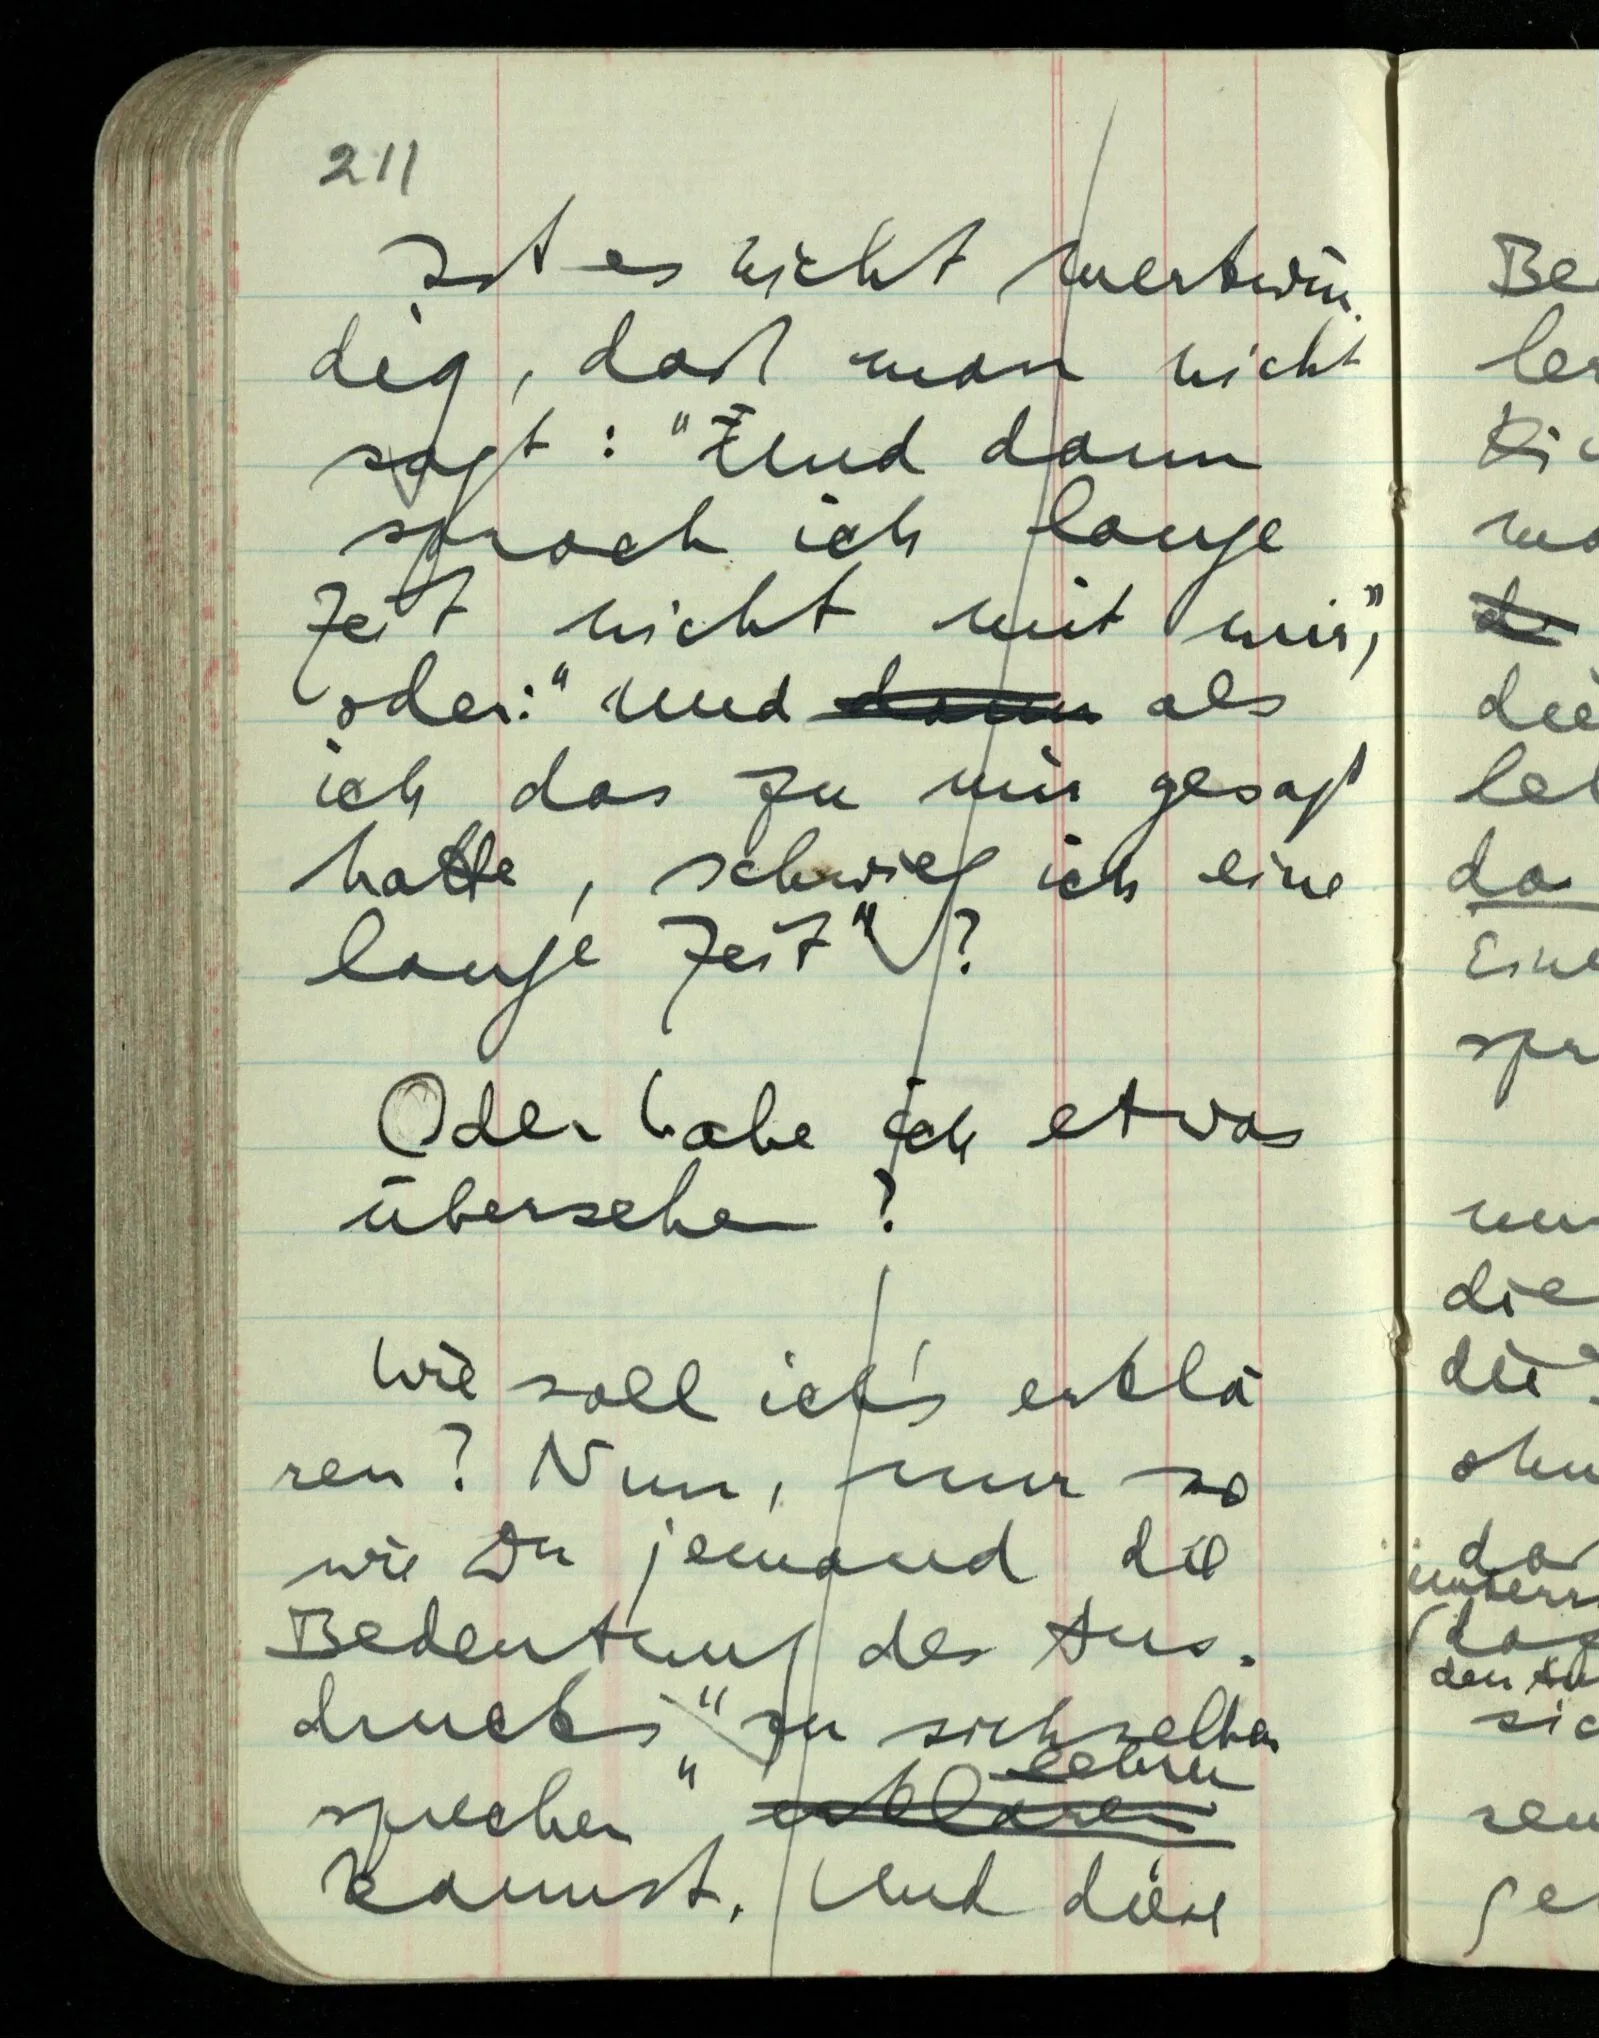 211
Ist es nicht merkwür-
dig, daß man nicht
sagt: "Und dann
sprach ich lange
Zeit nicht mit mir",
oder: "und dann als
ich das zu mir gesagt
hatte, schwieg ich eine
lange Zeit"?
Oder habe ich etwas
übersehen?
Wie soll ich's erklä
ren? Nun, nur so
wie Du jemand die
Bedeutung des Aus-
drucks "zu sich selber
lehren
sprechen" erklären
kannst. Und diese
Be
ler
ma
die
le
da
Eine
spr
die
die